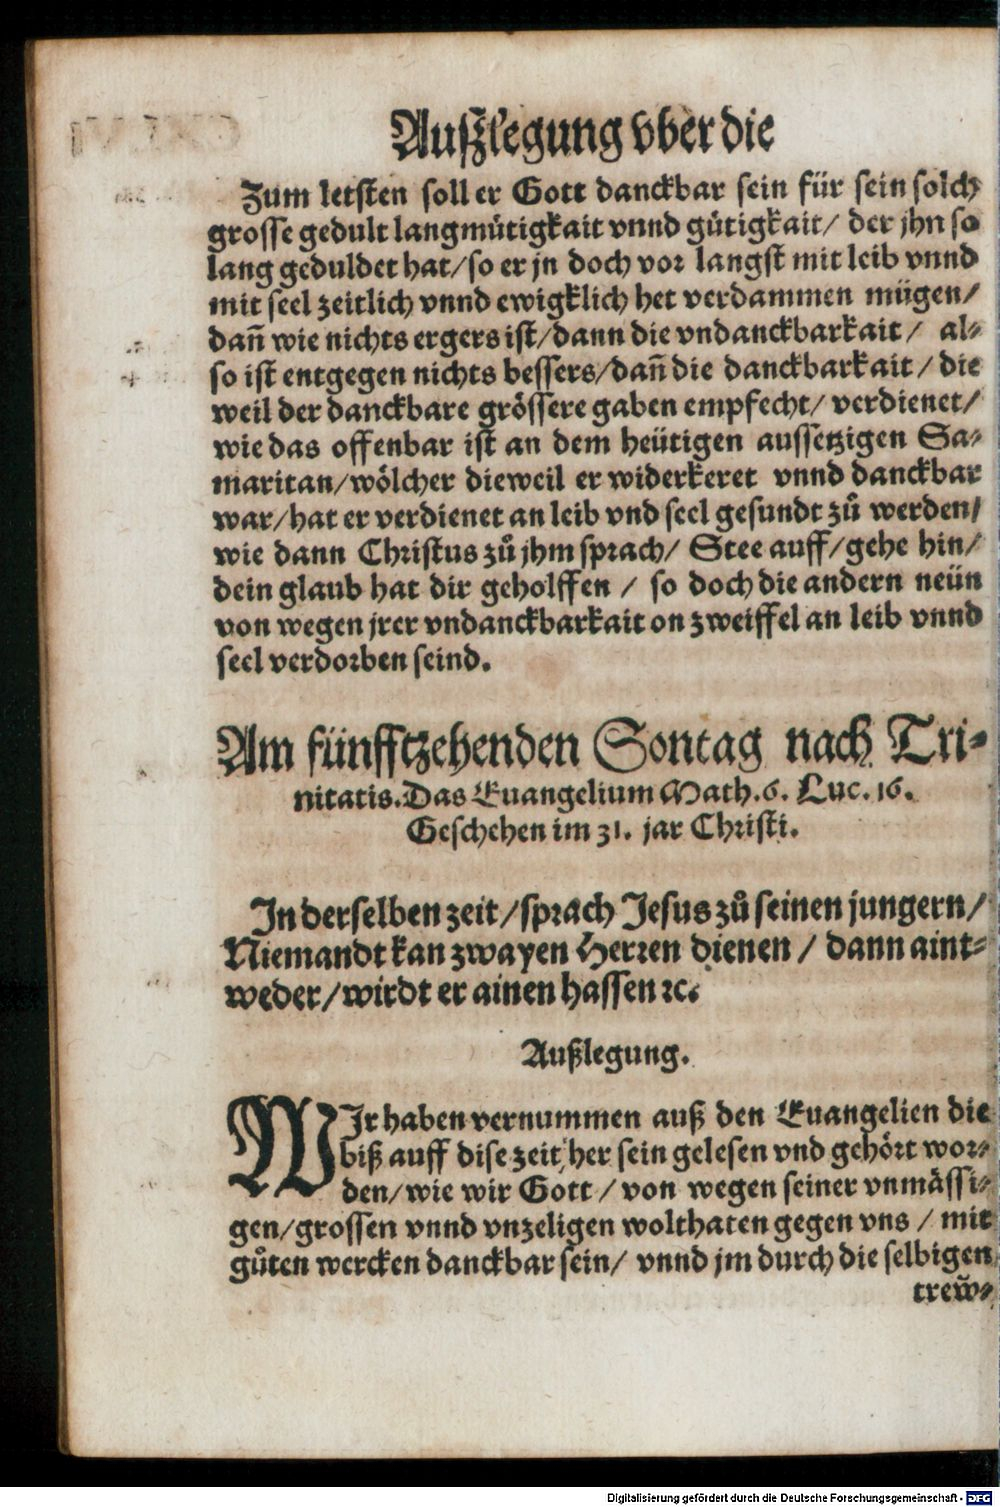 Außlegung vber die
Zum letsten soll er Gott danckbar sein für sein solch
grosse gedult langmütigkait vnnd gütigkait/ der jhn so
lang geduldet hat/so er jn doch vor langst mit leib vnnd
mit seel zeitlich vnnd ewigklich het verdammen mügen/
dañ wie nichts ergers ist/dann die vndanckbarkait / al-
so ist entgegen nichts bessers/dañ die danckbarkait / die
weil der danckbare grössere gaben empfecht/ verdienet/
wie das offenbar ist an dem heütigen aussetzigen Sa-
maritan/wölcher dieweil er widerkeret vnnd danckbar
war/hat er verdienet an leib vnd seel gesundt zů werden/
wie dann Christus zů jhm sprach/ Stee auff/gehe hin/
dein glaub hat dir geholffen / so doch die andern neün
von wegen jrer vndanckbarkait on zweiffel an leib vnnd
seel verdorben seind.
Am fünfftzehenden Sontag nach Tri-
nitatis.Das Euangelium Math.6. Luc.16.
Geschehen im 31. jar Christi.
In derselben zeit/sprach Jesus zů seinen jungern/
Niemandt kan zwayen Herren dienen / dann aint-
weder/wirdt er ainen hassen ꝛc.
Außlegung.
WIr haben vernummen auß den Euangelien die
biß auff dise zeit her sein gelesen vnd gehört wor-
den/wie wir Gott / von wegen seiner vnmässi-
gen/grossen vnnd vnzeligen wolthaten gegen vns / mit
gůten wercken danckbar sein/ vnnd jm durch die selbigen
trew-
Digitalisierung gefördert durch die Deutsche Forschungsgemeinschaft - DFG